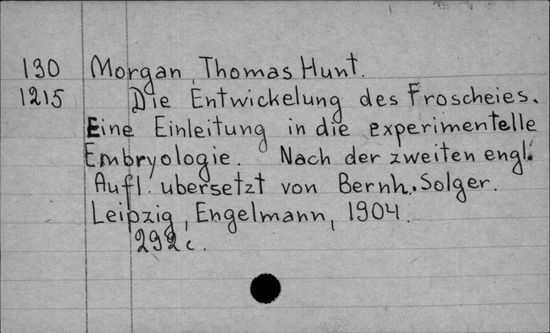 130 Morgan, Thomas Hunt.
1215 Die Entwickelung des Froscheies.
Eine Einleitung in die experimentelle
Embryologie. Nach der zweiten engl.
Aufl. ubersetzt von Bernh. Solger.
Leipzig, Engelmann, 1904.
292 c.